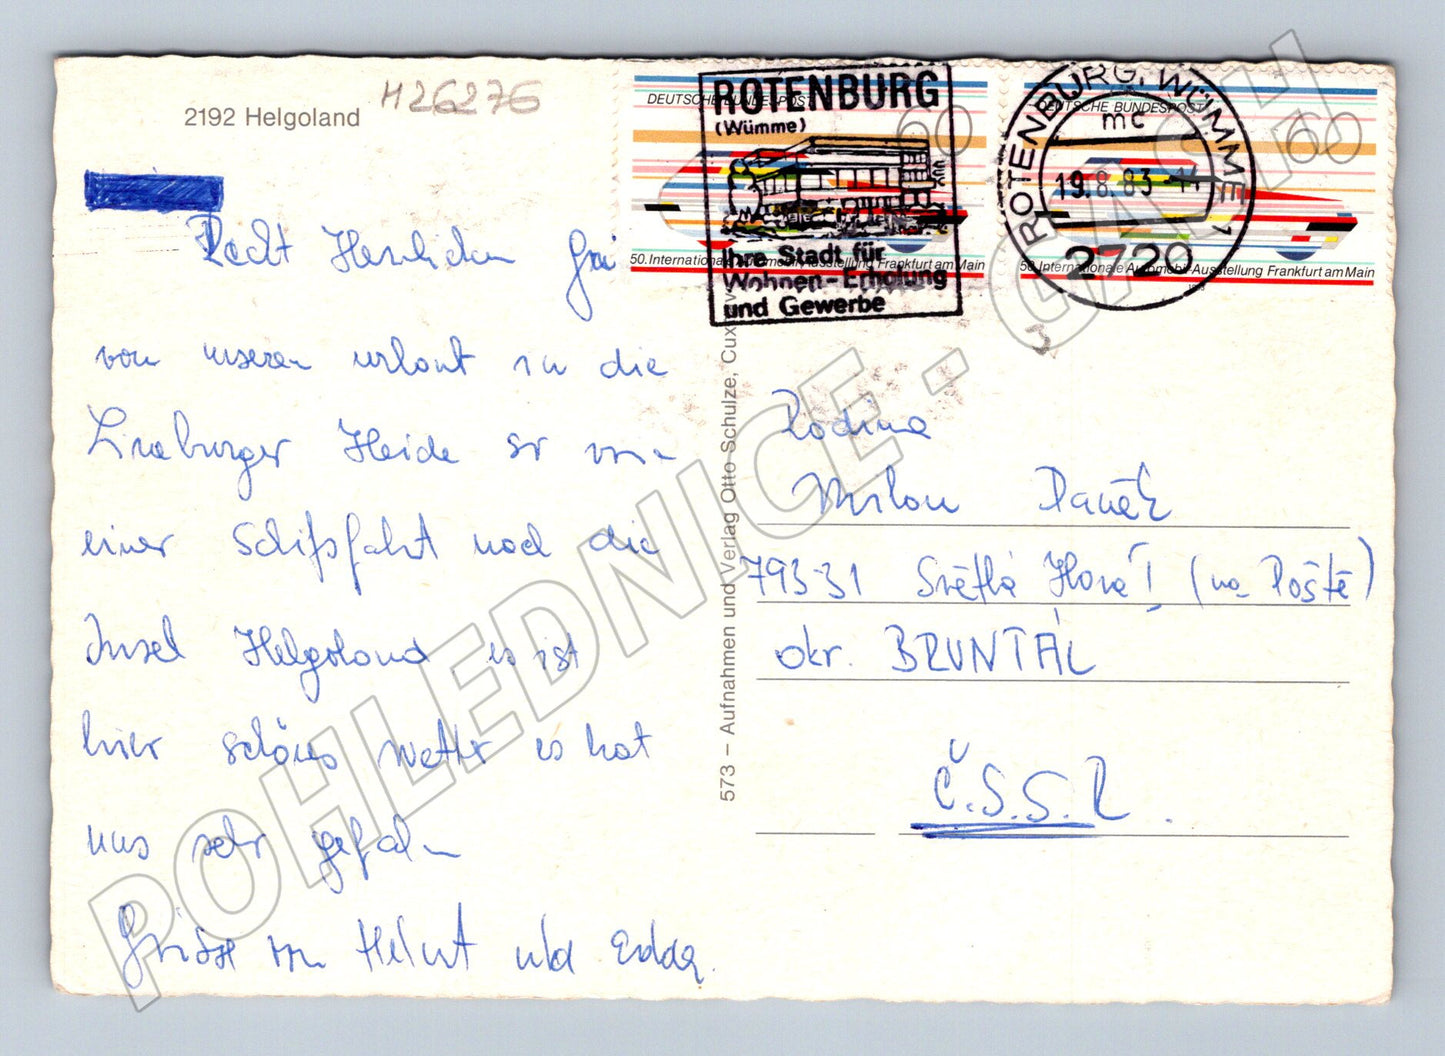 2192 Helgoland
H26276
Recht Herzlichen Grü
von unseren urlaut in die
Lneburger Heide sr von
einer Schifsfahrt nach die
Insel Helgoland es ist
hier schönes wetter es hat
uns sehr gefaln
Grüße von Helmut und Edda.
573 – Aufnahmen und Verlag Otto Schulze, Cux
DEUTSCHE BUNDESPOST
60
50. Internationale Automobil-Ausstellung Frankfurt am Main
DEUTSCHE BUNDESPOST
60
50. Internationale Automobil-Ausstellung Frankfurt am Main
ROTENBURG
(Wümme)
Ihre Stadt für
Wohnen-Erholung
und Gewerbe
ROTENBURG, WÜMME 1
mc
19.8.83-14
2720
3
Rodina
Milan Daněk
79331 Světlá Hora! (na Poště)
okr. BRUNTÁL
Č.S.S.R.
POHLEDNICE - GASH